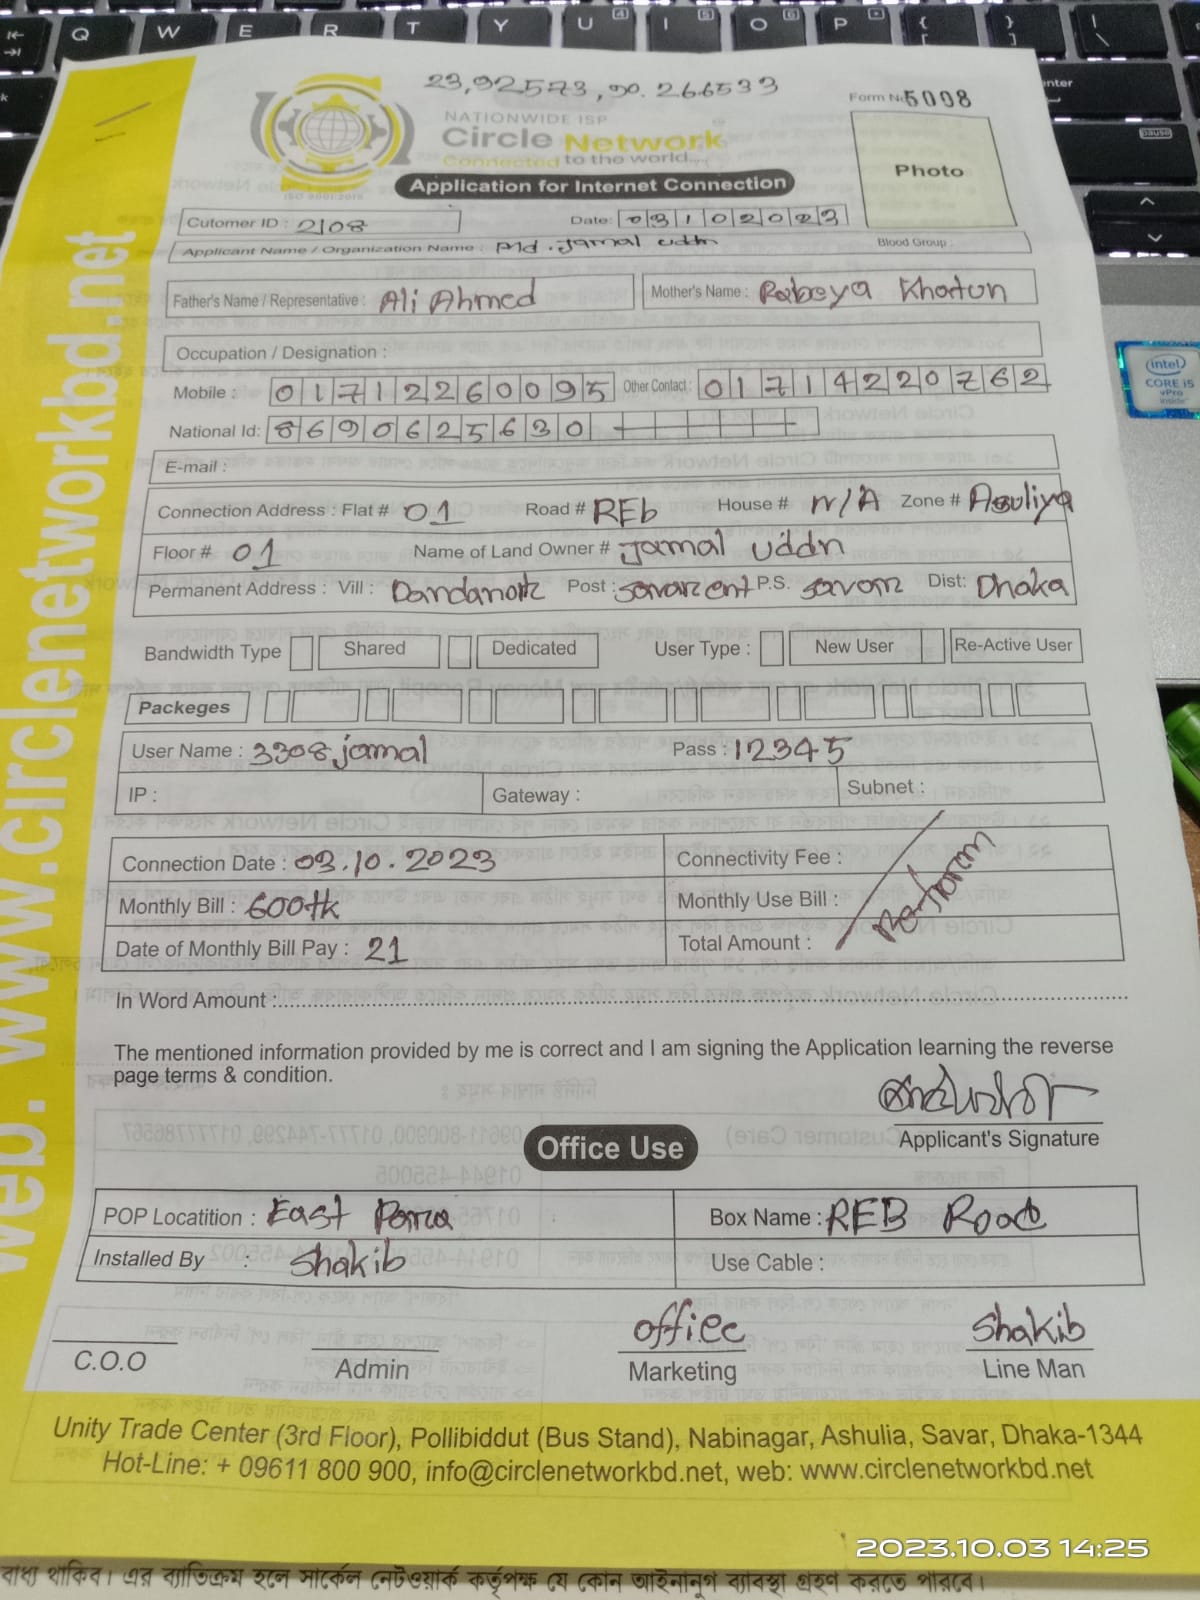 23,92573,90.266533
Form No 5008
NATIONWIDE ISP
Circle Network
Connected to the world....
ISO 9001:2015
Application for Internet Connection
Photo
Cutomer ID : 2108 Date: 03102023
Applicant Name / Organization Name : Md. Jamal uddn Blood Group :
Father's Name / Representative : Ali Ahmed Mother's Name : Rabeya Khatun
Occupation / Designation :
Mobile : 01712260095 Other Contact : 01714220762
National Id: 8690625630
E-mail :
Connection Address : Flat # 01 Road # REb House # N/A Zone # Asuliya
Floor # 01 Name of Land Owner # Jamal uddn
Permanent Address : Vill : Post : P.S. savar Dist: Dhaka
Bandwidth Type Shared Dedicated User Type : New User Re-Active User
Packeges
User Name : 3308jamal Pass : 12345
IP : Gateway : Subnet :
Connection Date : 03.10.2023 Connectivity Fee :
Monthly Bill : 600tk Monthly Use Bill :
Date of Monthly Bill Pay : 21 Total Amount :
In Word Amount :
The mentioned information provided by me is correct and I am signing the Application learning the reverse
page terms & condition.
Applicant's Signature
Office Use
POP Locatition : East Para Box Name : REB Road
Installed By : Shakib Use Cable :
office Shakib
C.O.O Admin Marketing Line Man
Unity Trade Center (3rd Floor), Pollibiddut (Bus Stand), Nabinagar, Ashulia, Savar, Dhaka-1344
Hot-Line: + 09611 800 900, info@circlenetworkbd.net, web: www.circlenetworkbd.net
web. www.circlenetworkbd.net
2023.10.03 14:25
বাধ্য থাকিব। এর ব্যতিক্রম হলে সার্কেল নেটওয়ার্ক কর্তৃপক্ষ যে কোন আইনানুগ ব্যবস্থা গ্রহণ করতে পারবে।
intel
CORE i5
vPro
inside
Q W E R T Y U I O P
enter
pause